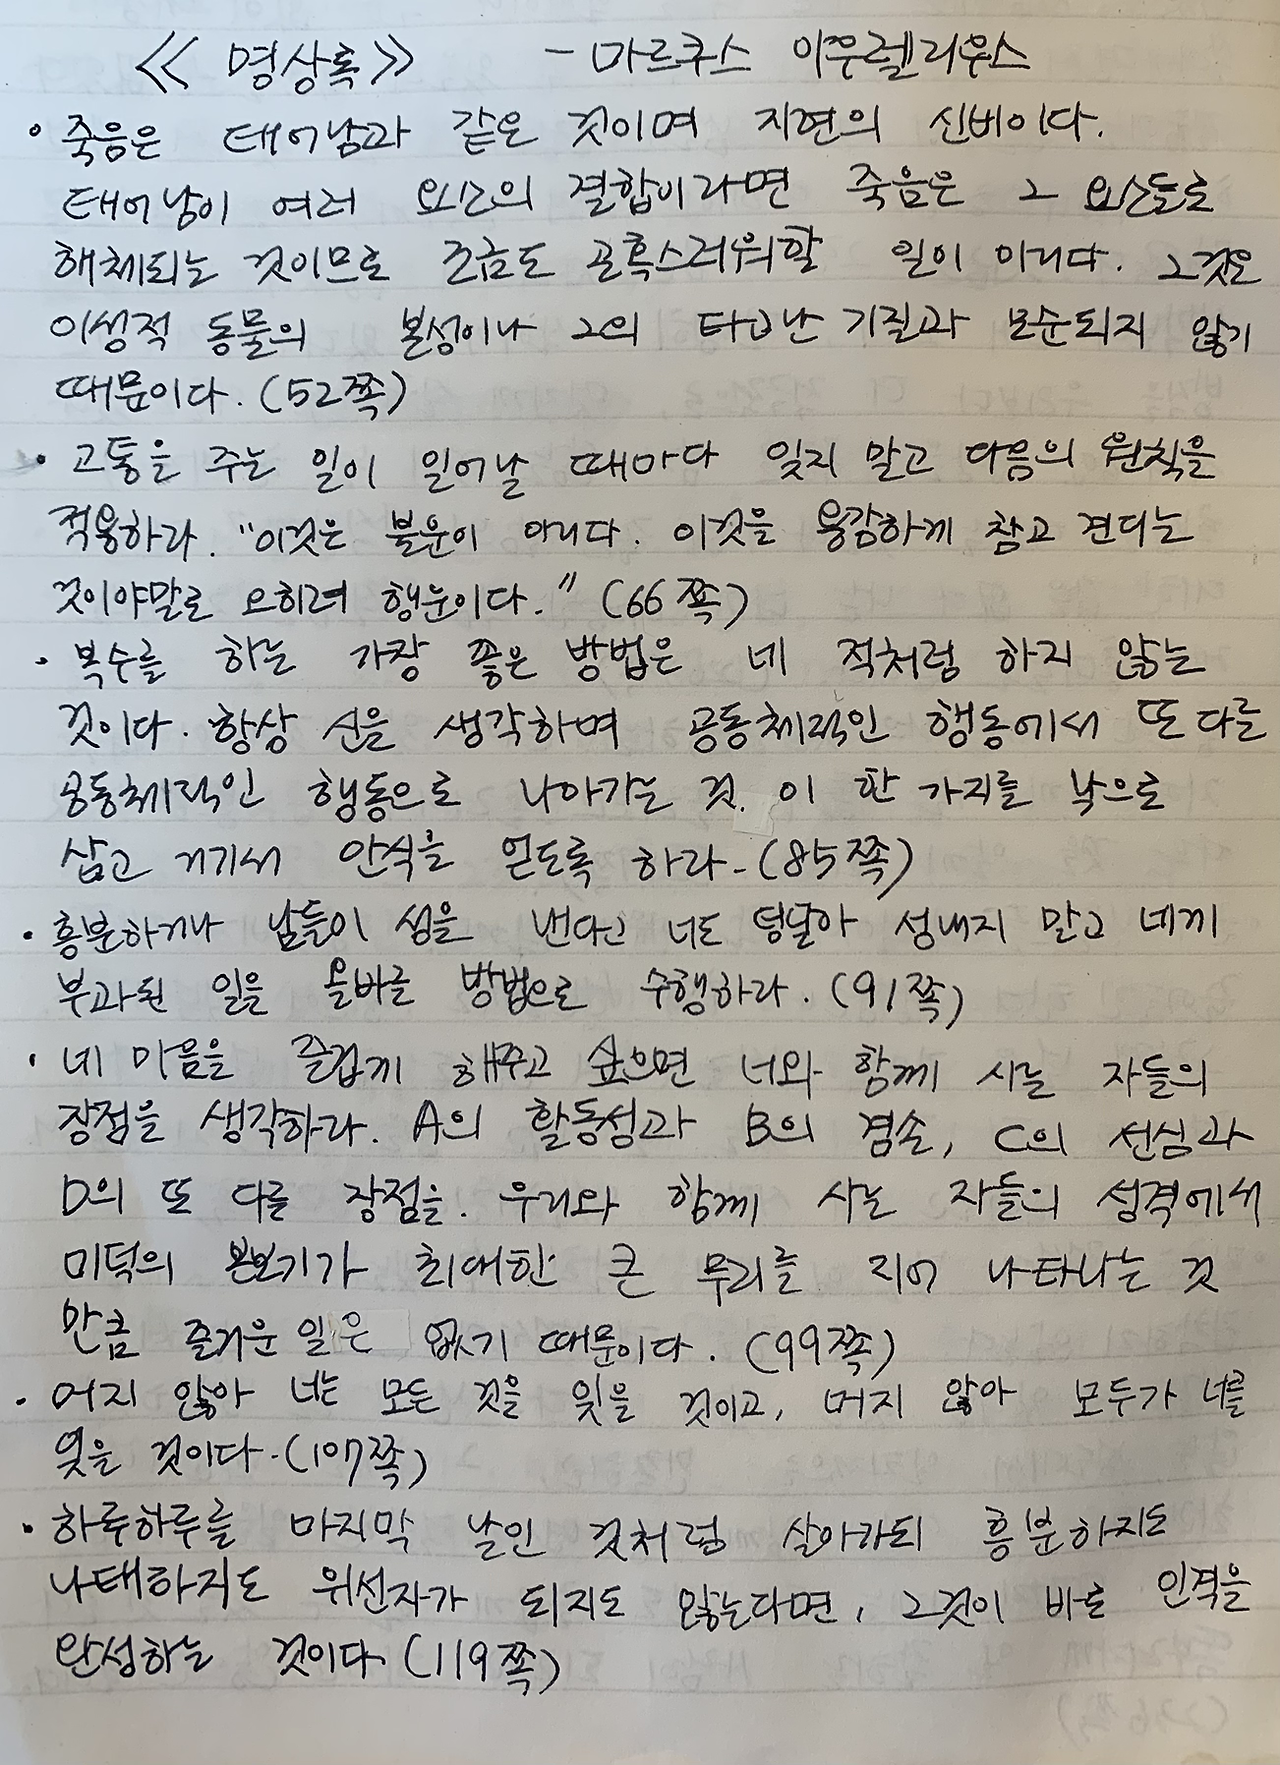 《 명상록 》 - 마르쿠스 아우렐리우스
• 죽음은 태어남과 같은 것이며 자연의 신비이다.
태어남이 여러 요소의 결합이라면 죽음은 그 요소들로
해체되는 것이므로 조금도 곤혹스러워할 일이 아니다. 그것은
이성적 동물의 본성이나 그의 타고난 기질과 모순되지 않기
때문이다. (52쪽)
• 고통을 주는 일이 일어날 때마다 잊지 말고 다음의 원칙을
적용하라. "이것은 불운이 아니다. 이것을 용감하게 참고 견디는
것이야말로 오히려 행운이다." (66쪽)
• 복수를 하는 가장 좋은 방법은 네 적처럼 하지 않는
것이다. 항상 신을 생각하며 공동체적인 행동에서 또 다른
공동체적인 행동으로 나아가는 것. 이 한 가지를 낙으로
삼고 거기서 안식을 얻도록 하라. (85쪽)
• 흥분하거나 남들이 성을 낸다고 너도 덩달아 성내지 말고 네게
부과된 일을 올바른 방법으로 수행하라. (91쪽)
• 네 마음을 즐겁게 해주고 싶으면 너와 함께 사는 자들의
장점을 생각하라. A의 활동성과 B의 겸손, C의 선심과
D의 또 다른 장점을. 우리와 함께 사는 자들의 성격에서
미덕의 본보기가 최대한 큰 무리를 지어 나타나는 것
만큼 즐거운 일은 없기 때문이다. (99쪽)
• 머지 않아 너는 모든 것을 잊을 것이고, 머지 않아 모두가 너를
잊을 것이다. (107쪽)
• 하루하루를 마지막 날인 것처럼 살아가되 흥분하지도
나태하지도 위선자가 되지도 않는다면, 그것이 바로 인격을
완성하는 것이다. (119쪽)